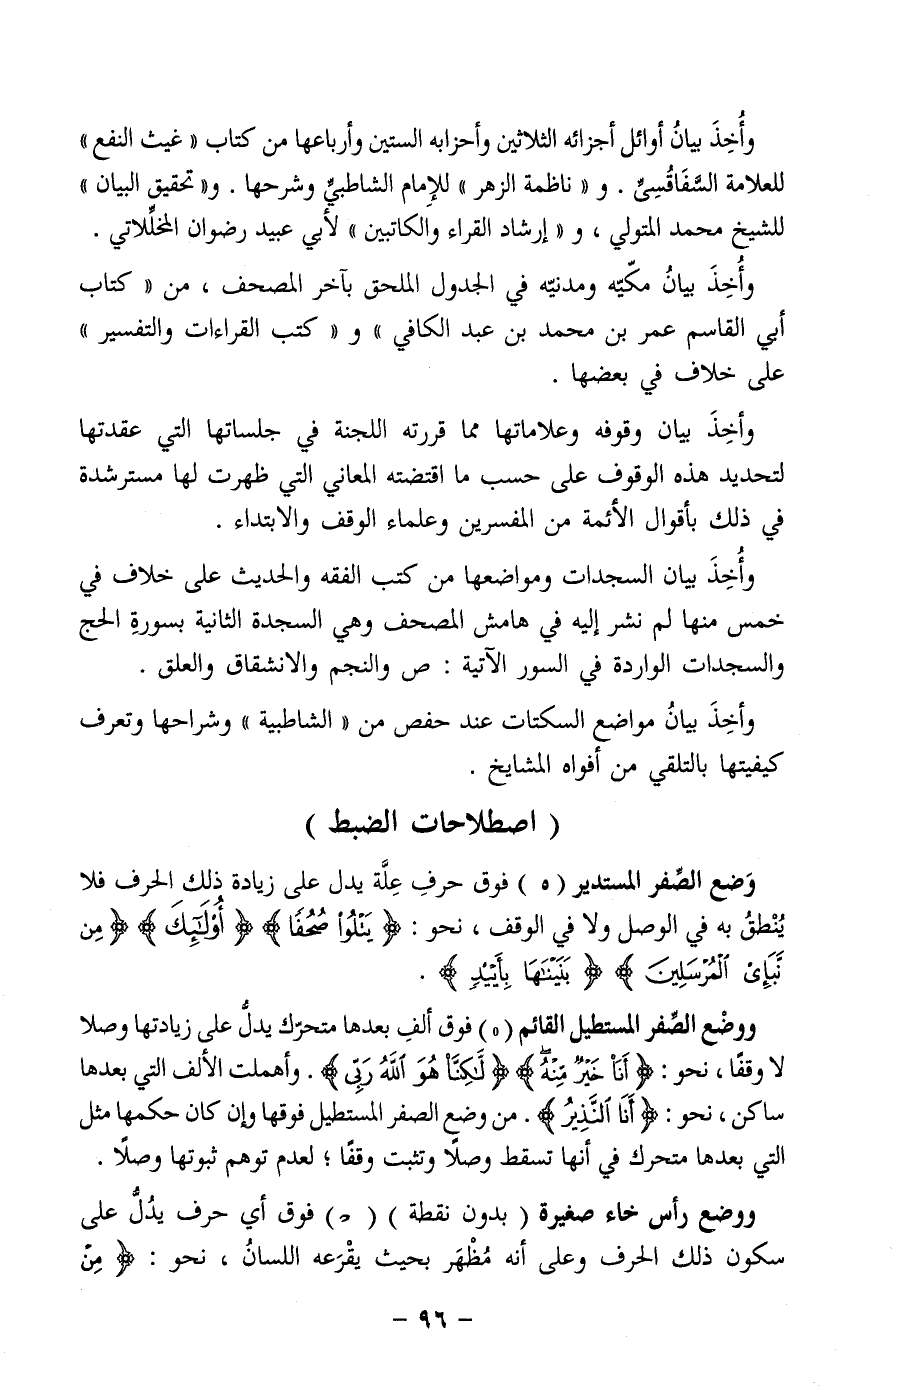 وأُخِذَ بيانُ أوائل أجزائه الثلاثين وأحزابه الستين وأرباعها من كتاب « غيث النفع »
للعلامة السَّفَاقُسِيِّ . و « ناظمة الزهر » للإِمام الشاطبيِّ وشرحها . و« تحقيق البيان »
للشيخ محمد المتولي ، و « إرشاد القراء والكاتبين » لأبي عبيد رضوان المخلِّلاتي .
وأُخِذَ بيانُ مكّيّه ومدنيّه في الجدول الملحق بآخر المصحف ، من « كتاب
أبي القاسم عمر بن محمد بن عبد الكافي » و « كتب القراءات والتفسير »
على خلاف في بعضها .
وأخِذَ بيان وقوفه وعلاماتها مما قررته اللجنة في جلساتها التي عقدتها
لتحديد هذه الوقوف على حسب ما اقتضته المعاني التي ظهرت لها مسترشدة
في ذلك بأقوال الأئمة من المفسرين وعلماء الوقف والابتداء .
وأُخِذَ بيان السجدات ومواضعها من كتب الفقه والحديث على خلاف في
خمس منها لم نشر إليه في هامش المصحف وهي السجدة الثانية بسورةِ الحج
والسجدات الواردة في السور الآتية : ص والنجم والانشقاق والعلق .
وأخِذَ بيانُ مواضع السكتات عند حفص من « الشاطبية » وشراحها وتعرف
كيفيتها بالتلقي من أفواه المشايخ .
( اصطلاحات الضبط )
وَضع الصِّفر المستدير ( ٥ ) فوق حرفِ عِلَّة يدل على زيادة ذلك الحرف فلا
يُنْطقُ به في الوصل ولا في الوقف ، نحو : ﴿ يَتْلُوا۟ صُحُفًا ﴾ ﴿ أُو۟لَـٰٓئِكَ ﴾ ﴿ مِن
نَّبَإِى۟ ٱلْمُرْسَلِينَ ﴾ ﴿ بَنَيْنَـٰهَا بِأَيْي۟دٍ ﴾ .
ووضْع الصِّفر المستطيل القائم (٥) فوق ألفِ بعدها متحرّك يدلُّ على زيادتها وصلا
لا وقفًا ، نحو : ﴿ أَنَا۠ خَيْرٌ مِّنْهُ ﴾ ﴿ لَّـٰكِنَّا۠ هُوَ ٱللَّهُ رَبِّى ﴾ . وأهملت الألف التي بعدها
ساكن ، نحو : ﴿ أَنَا ٱلنَّذِيرُ ﴾ . من وضع الصفر المستطيل فوقها وإن كان حكمها مثل
التي بعدها متحرك في أنها تسقط وصلًا وتثبت وقفًا ؛ لعدم توهم ثبوتها وصلًا .
ووضع رأس خاء صغيرة ( بدون نقطة ) ( حـ ) فوق أي حرف يدُلُّ على
سكون ذلك الحرف وعلى أنه مُظْهَر بحيث يقْرَعه اللسانُ ، نحو : ﴿ مِنْ
- ٩٦ -